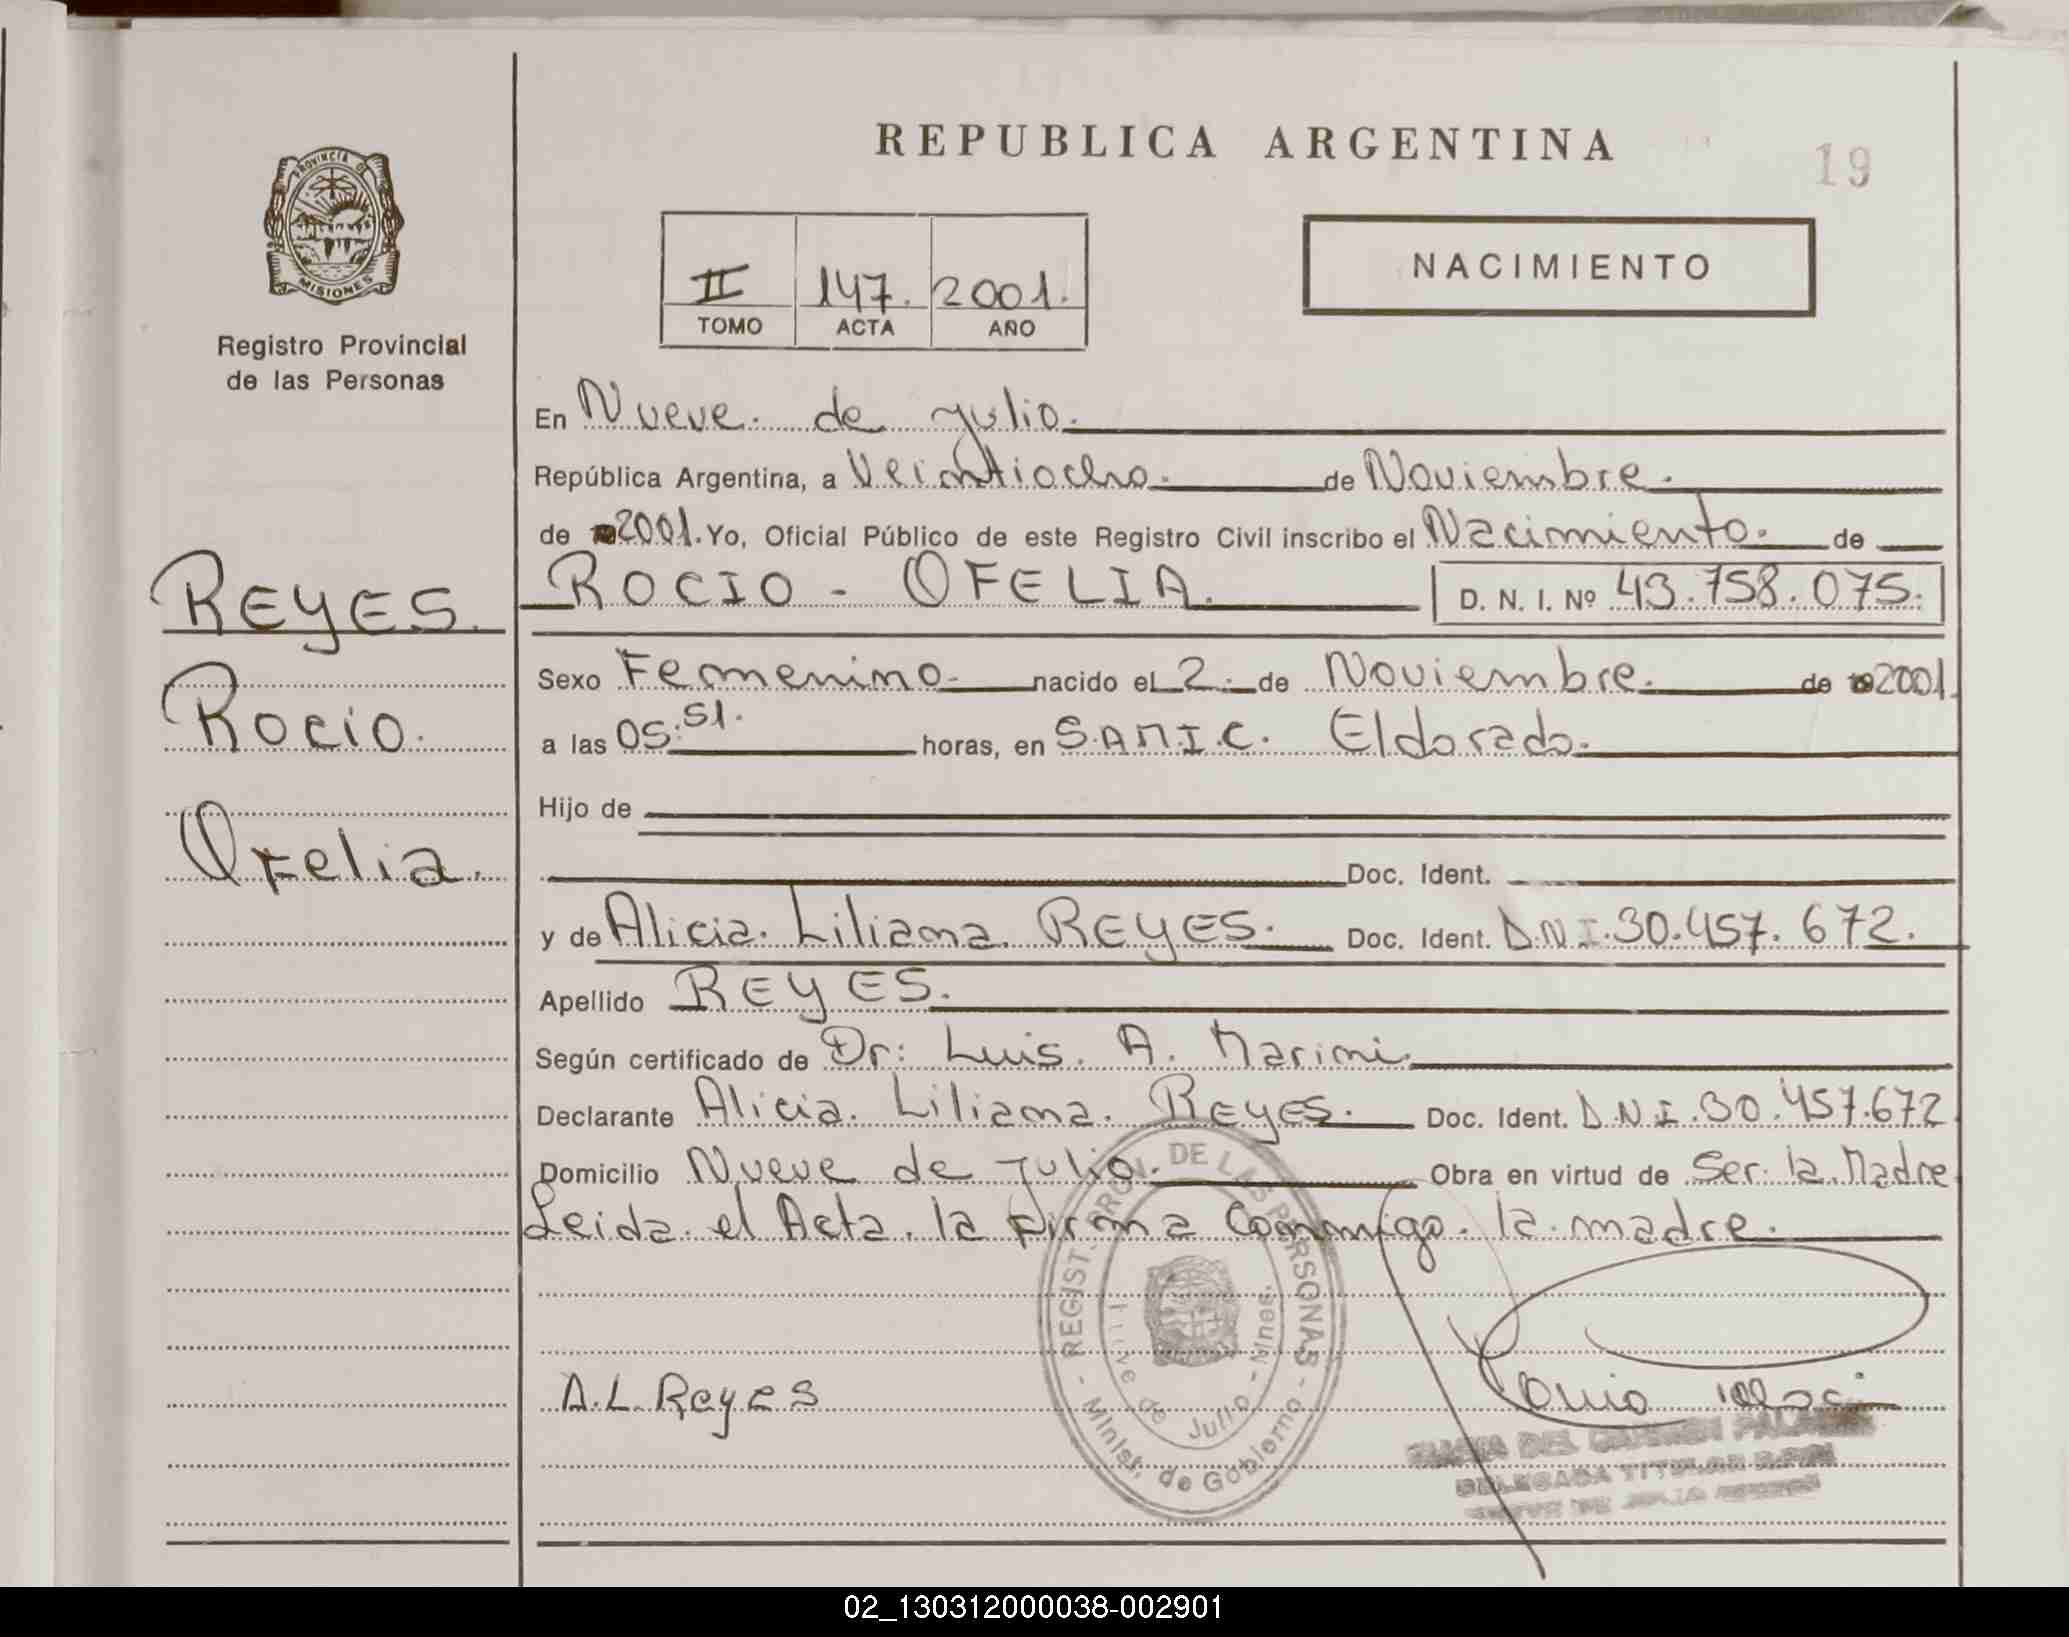 REPUBLICA ARGENTINA
19
PROVINCIA DE
MISIONES
Registro Provincial
de las Personas
II 147. 2001.
TOMO ACTA AÑO
NACIMIENTO
En Nueve de Julio.
República Argentina, a Veintiocho. de Noviembre.
de 2001. Yo, Oficial Público de este Registro Civil inscribo el Nacimiento. de
REYES.
ROCIO - OFELIA. D. N. I. Nº 43.758.075.
Rocio.
Ofelia.
Sexo Femenino nacido el 2. de Noviembre. de 2001.
a las 05:51. horas, en S.A.M.I.C. Eldorado.
Hijo de
Doc. Ident.
y de Alicia. Liliana REYES. Doc. Ident. D.N.I.30.457.672.
Apellido REYES.
Según certificado de Dr: Luis. A. Marini.
Declarante Alicia. Liliana. Reyes. Doc. Ident. D.N.I.30.457.672
Domicilio Nueve de Julio. Obra en virtud de Ser la Madre
Leida el Acta. la firma Conmigo. la madre.
REGIST. PROV. DE LAS PERSONAS
- Minist. de Gobierno -
de Julio - Mnes.
A.L. Reyes
DEL CARMEN
DELEGADA TITULAR
NUEVE DE JULIO
02_130312000038-002901